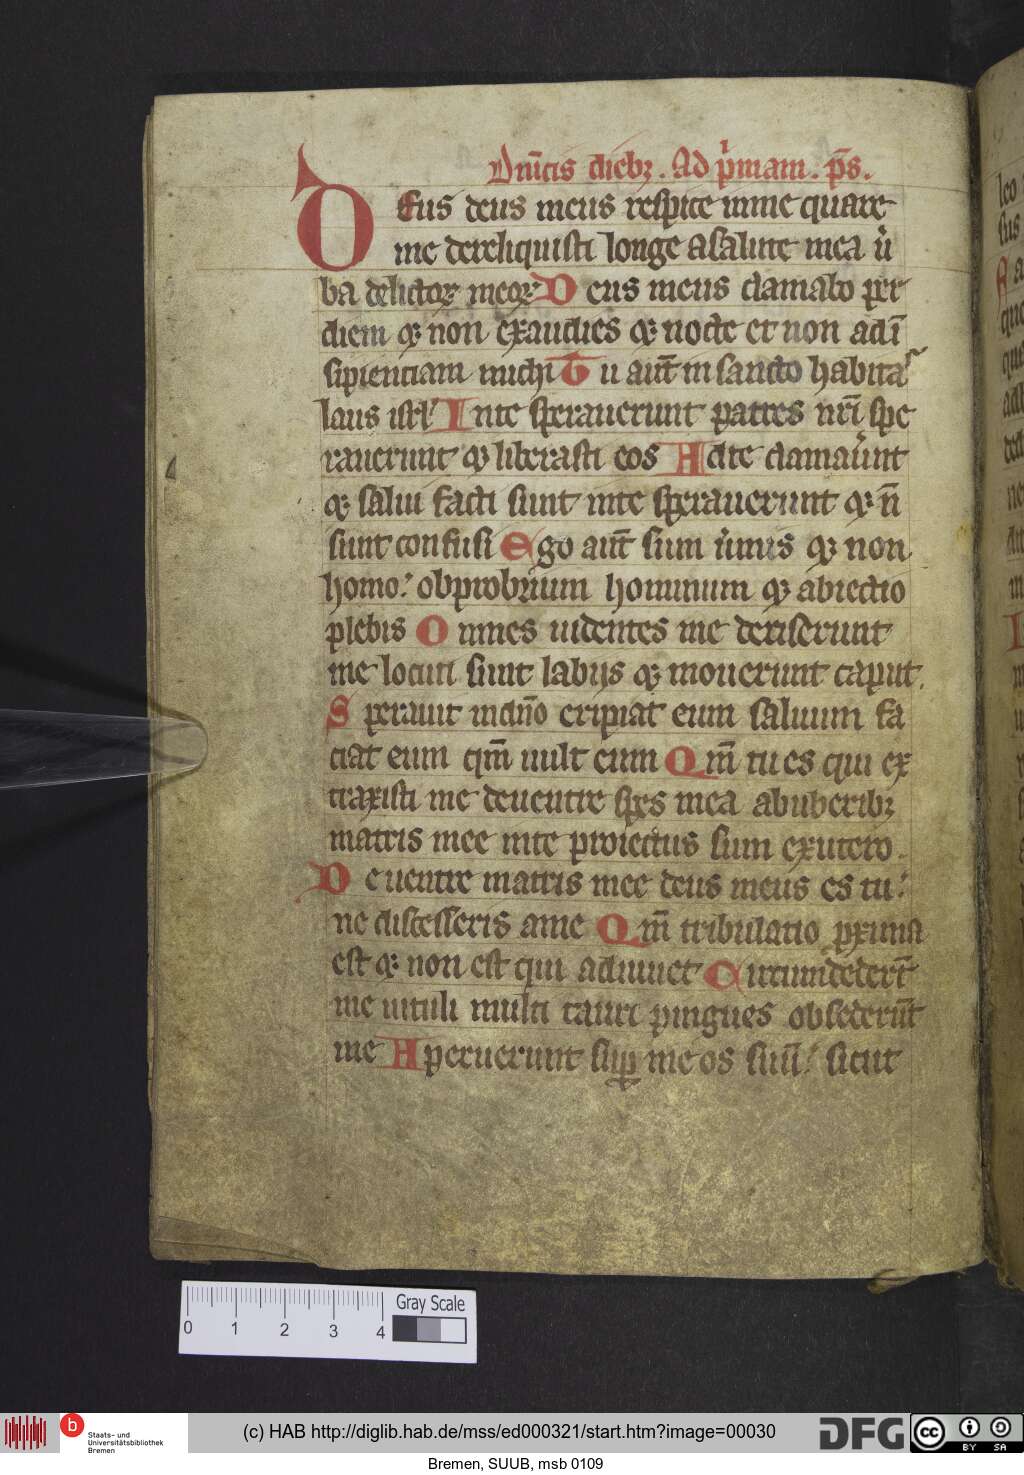 Dn̄icis dieb₉ . Ad p̍mam . p̄s .
DEus deus meus respice inme quare
me dereliquisti longe asalute mea u̍
ba delictoꝝ meoꝝ Deus meus clamabo per
diem ⁊ non exaudies ⁊ nocte et non ad ī
sipientiam michi Tu aut̄ in sancto habitas
laus isrl' Inte sperauerunt patres nr̄i spe
rauerunt ⁊ liberasti eos Adte clamau̍unt
⁊ salui facti sunt inte sperauerunt ⁊ n̄
sunt confusi Ego aut̄ sum u̍mis ⁊ non
homo: obprobrium hominum ⁊ abiectio
plebis Omnes uidentes me deriserunt
me locuti sunt labijs ⁊ mouerunt caput.
Sperauit indn̄o eripiat eum saluum fa
ciat eum qm̄ uult eum Qm̄ tu es qui ex
traxisti me deuentre spes mea abuberib₉
matris mee inte proiectus sum exutero .
De uentre matris mee deus meus es tu:
ne discesseris ame Qm̄ tribulatio ꝓxima
est ⁊ non est qui adiuuet Circumdedert̄
me uituli multi tauri pingues obsederūt
me Aperuerunt suꝑ me os suū: sicut
leo
sus
Gray Scale
0 1 2 3 4
b
Staats- und
Universitätsbibliothek
Bremen
(c) HAB http://diglib.hab.de/mss/ed000321/start.htm?image=00030
DFG
cc BY SA
Bremen, SUUB, msb 0109